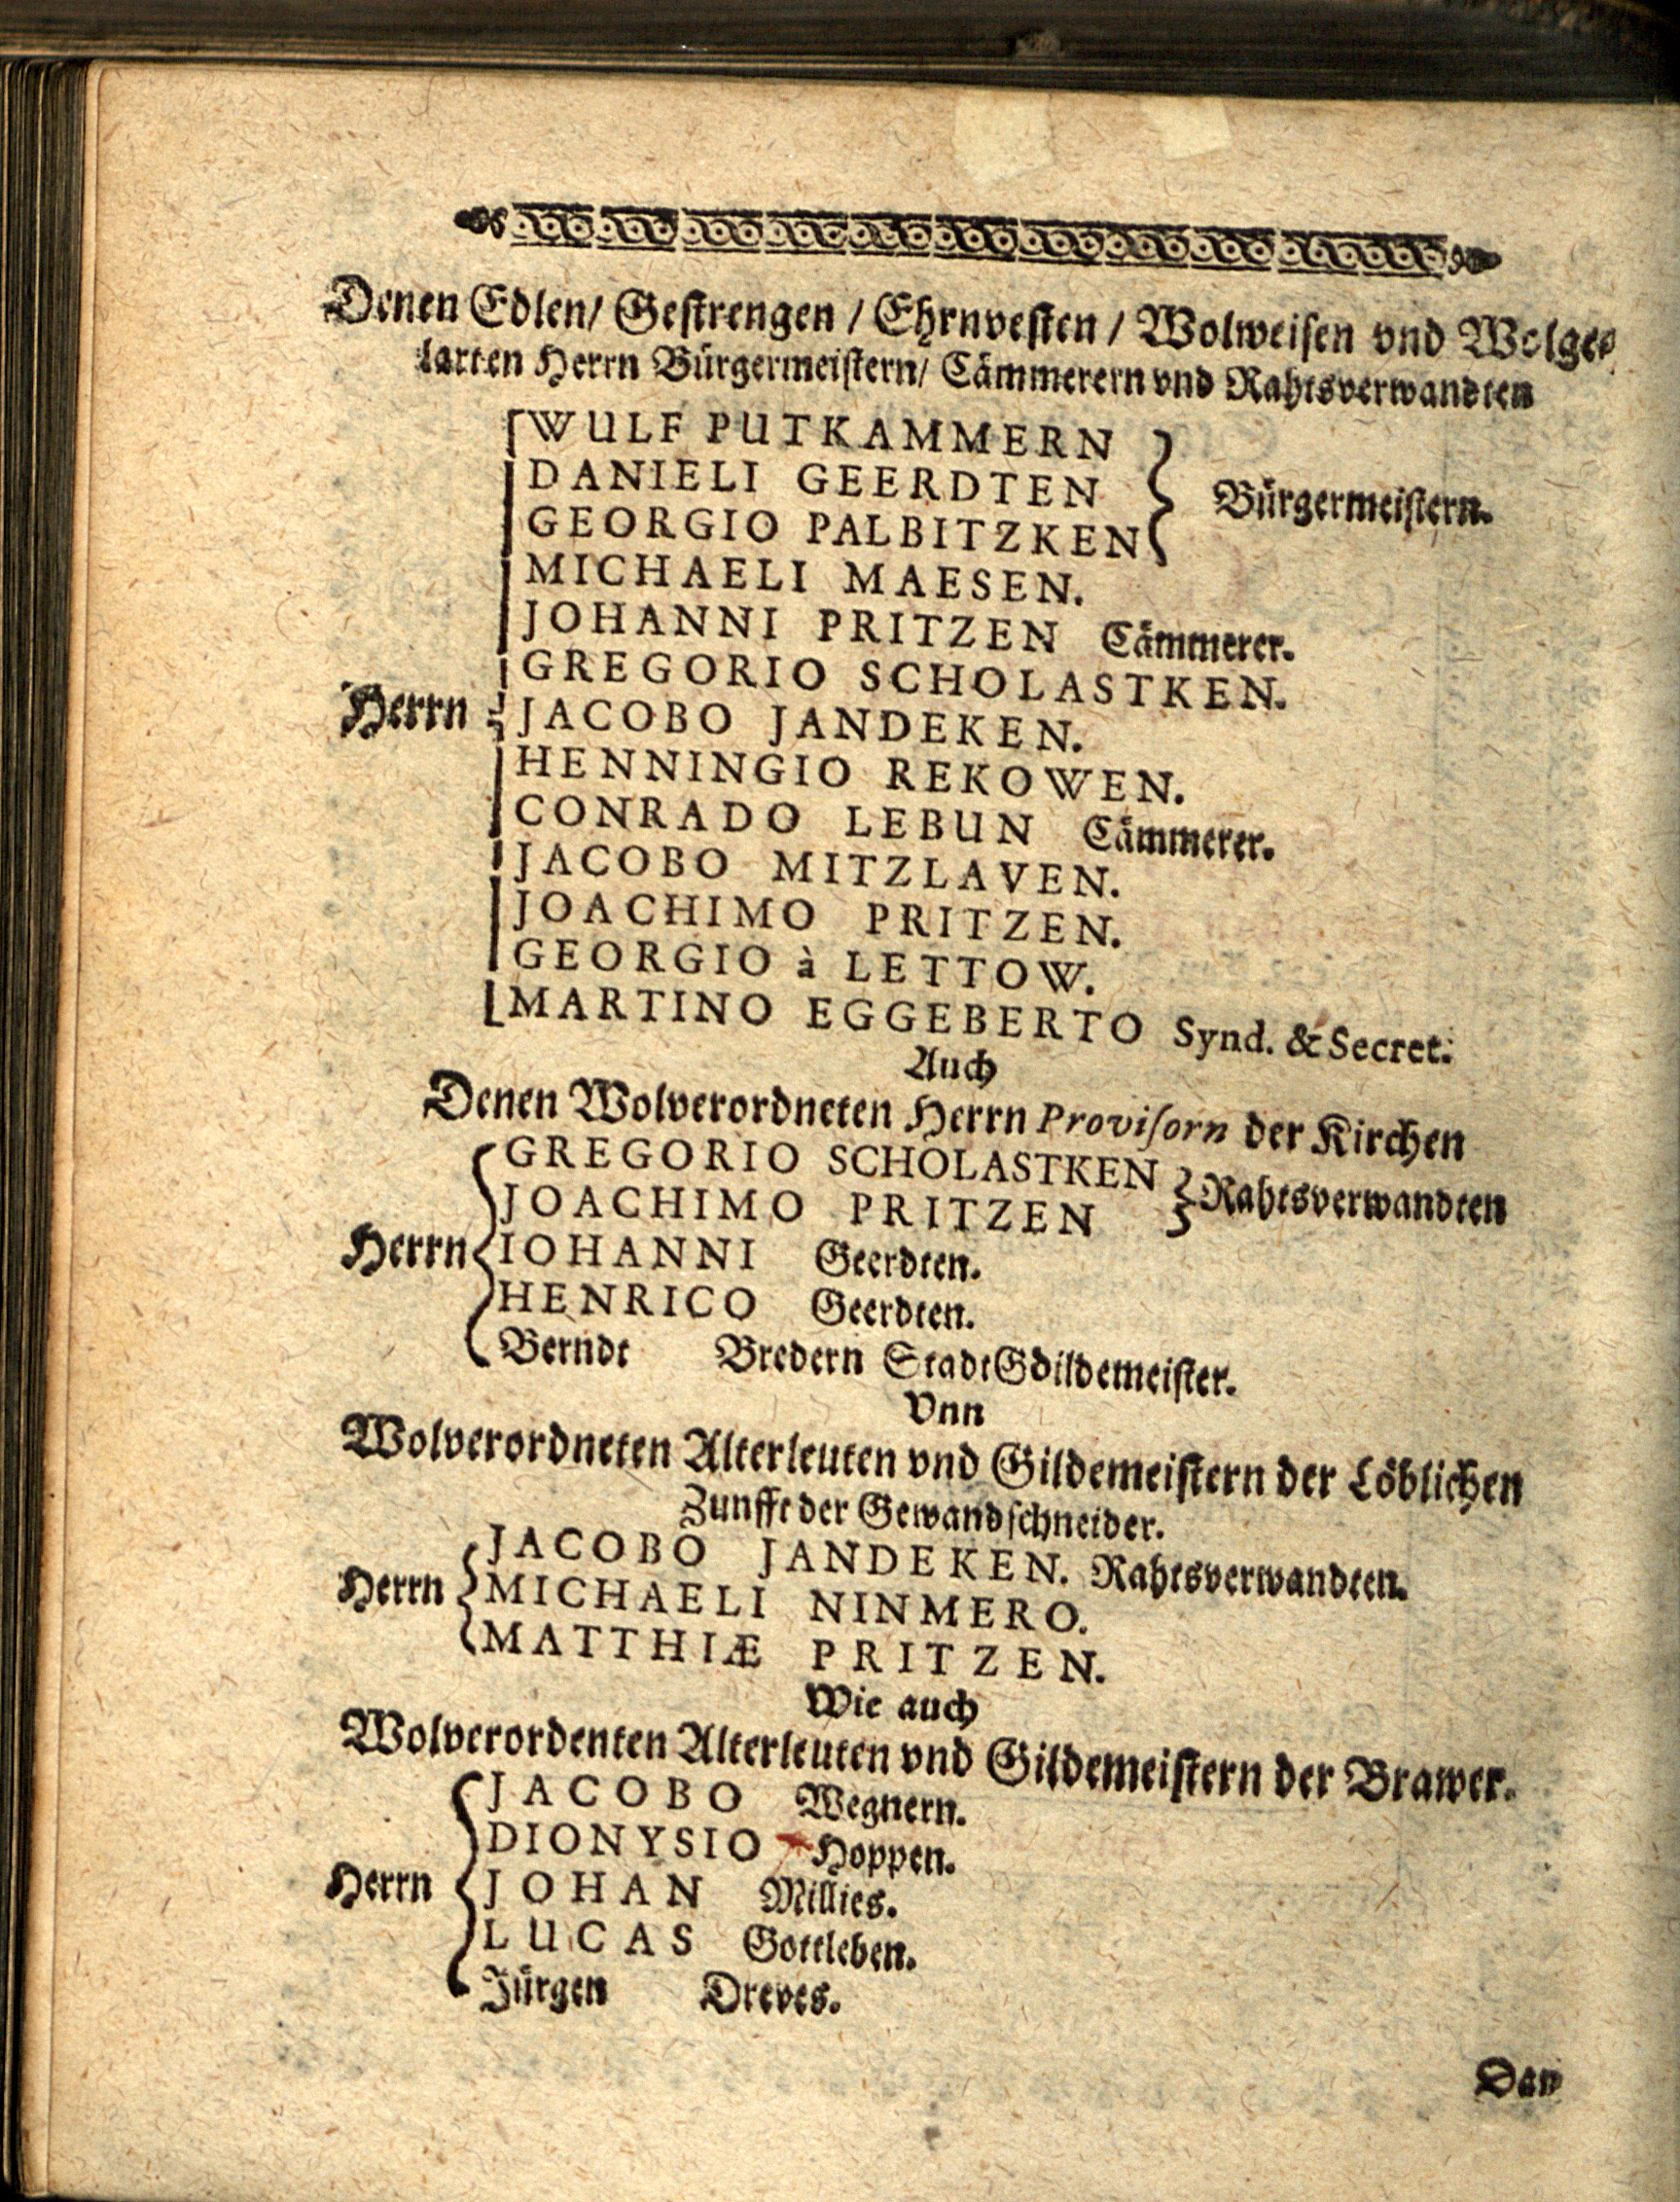 Denen Edlen/ Gestrengen / Ehrnvesten / Wolweisen vnd Wolge⸗
larten Herrn Bürgermeistern/ Cämmerern vnd Rahtsverwandten
WULF PUTKAMMERN
DANIELI GEERDTEN
Bürgermeistern.
GEORGIO PALBITZKEN
MICHAELI MAESEN.
JOHANNI PRITZEN Cämmerer.
GREGORIO SCHOLASTKEN.
Herrn JACOBO JANDEKEN.
HENNINGIO REKOWEN.
CONRADO LEBUN Cämmerer.
JACOBO MITZLAVEN.
JOACHIMO PRITZEN.
GEORGIO à LETTOW.
MARTINO EGGEBERTO Synd. & Secret.
Auch
Denen Wolverordneten Herrn Provisorn der Kirchen
GREGORIO SCHOLASTKEN
Rahtsverwandten
JOACHIMO PRITZEN
Herrn IOHANNI Geerdten.
HENRICO Geerdten.
Berndt Bredern StadtGdildemeister.
Vnn
Wolverordneten Alterleuten vnd Gildemeistern der Löblichen
Zunfft der Gewandschneider.
JACOBO JANDEKEN. Rahtsverwandten.
Herrn MICHAELI NINMERO.
MATTHIÆ PRITZEN.
Wie auch
Wolverordenten Alterleuten vnd Gildemeistern der Brawer.
JACOBO Wegnern.
DIONYSIO Hoppen.
Herrn JOHAN Millies.
LUCAS Gottleben.
Jürgen Dreves.
Den